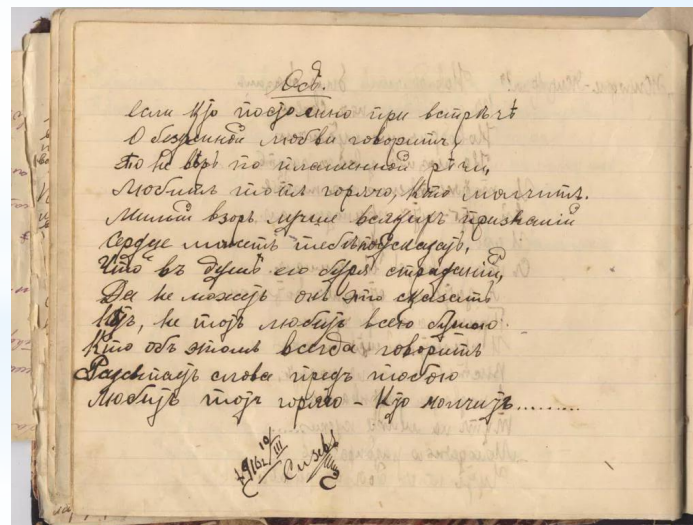 Если кто постоянно при встрѣчѣ
О безумной любви говоритъ,
То не вѣрь по пламенной рѣчи,
Любитъ тотъ горячо, кто молчитъ.
Милый взоръ лучше всякихъ признаній
Сердце можетъ тебѣ подсказать,
Что въ душѣ его буря страданій,
Да не можетъ онъ это сказать
Нѣтъ, не тотъ любитъ всею душою
Кто объ этомъ всегда говоритъ
слова предъ тобою
Любитъ тотъ горячо – Кто молчитъ.........
19 16/III